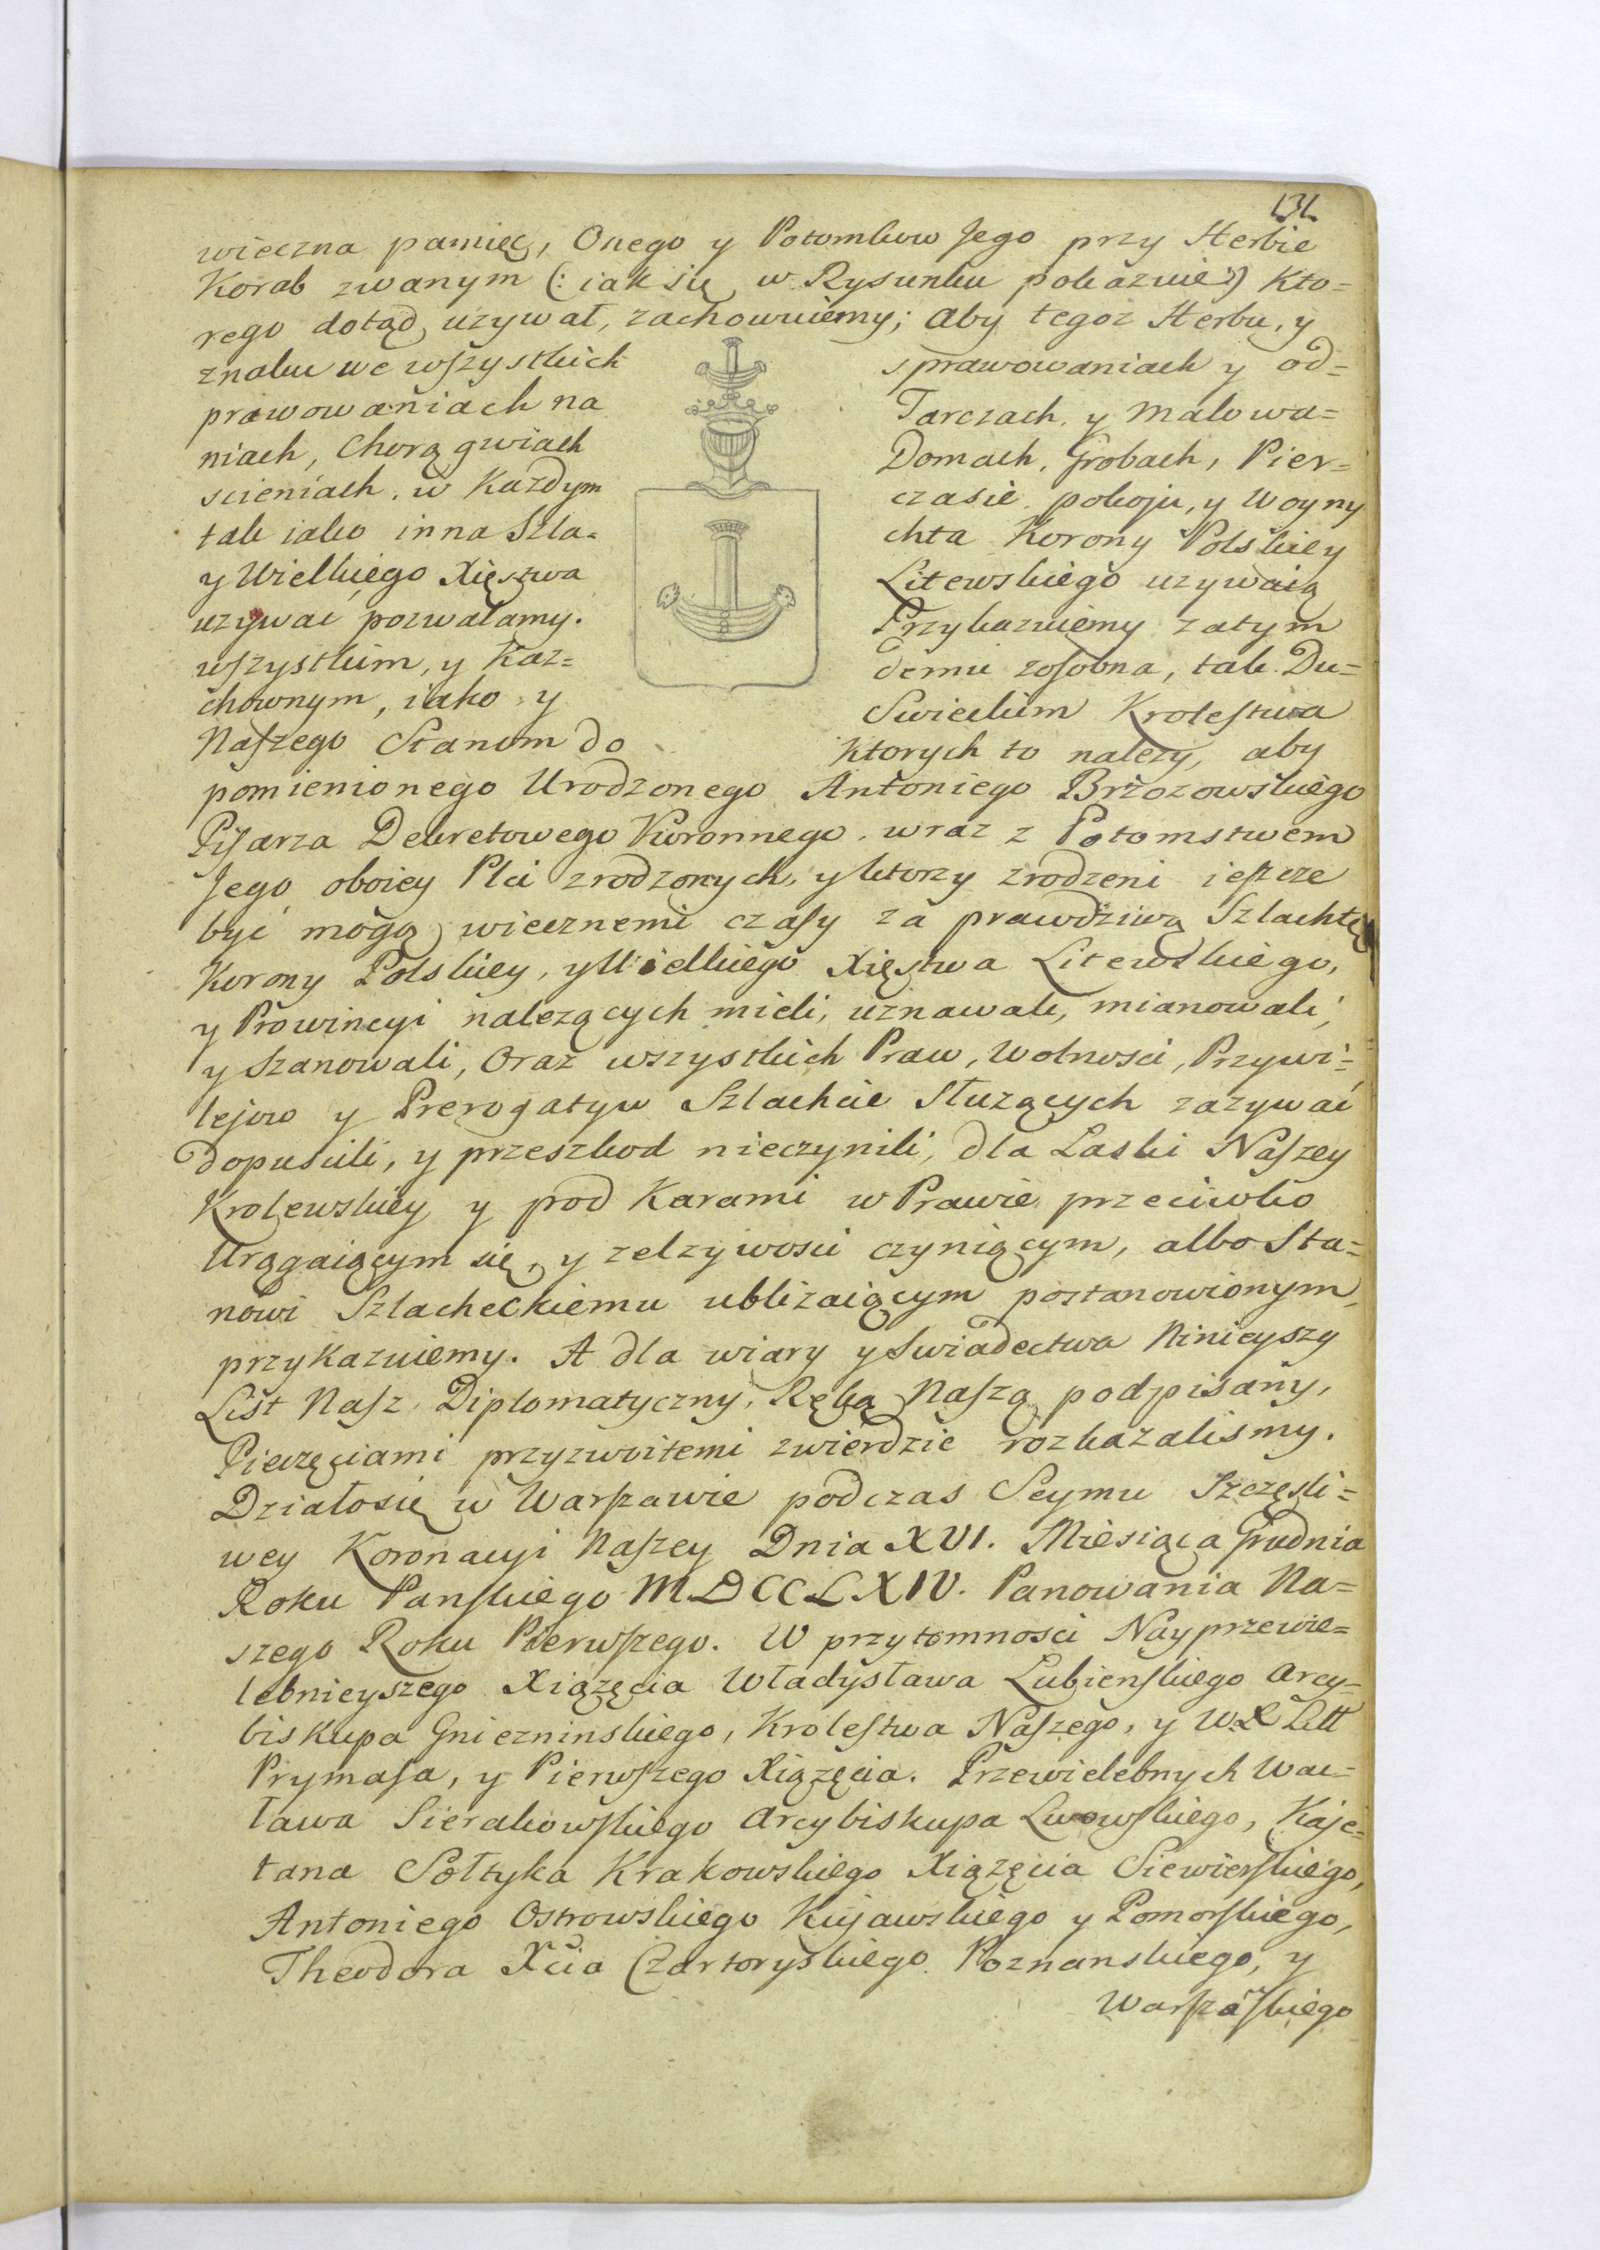 131.
wieczna pamięc, Onego y Potomkow Jego przy Herbie
Korab zwanym (: iak się w Rysunku pokazuie :) Kto=
rego dotąd uzywał, zachowuiemy; aby tegoz Herbu, y
znaku we wszystkich sprawowaniach y od=
prawowaniach na Tarczach y Malowa=
niach, Chorągwiach Domach, Grobach, Pier=
scieniach, w Kazdym czasie pokoju, y Woyny
tak iako inna Szla= chta Korony Polskiey
y Wielkiego Xięstwa Litewskiego uzywaią
uzywac pozwalamy. Przykazuiemy zatym
wszystkim, y Kaz= demu zosobna, tak Du=
chownym, iako y Swieckim Krolestwa
Naszego Stanom do ktorych to nalezy, aby
pomienionego Urodzonego Antoniego Brzozowskiego
Pisarza Dekretowego Koronnego wraz z Potomstwem
Jego oboiey Płci zrodzonych, y ktorzy zrodzeni ieszcze
być mogą wiecznemi czasy za prawdziwą Szlachtę
Korony Polskiey, y Wielkiego Xięstwa Litewskiego,
y Prowincyi nalezących mieli, uznawali, mianowali,
y szanowali, Oraz wszystkich Praw, Wolnosci, Przywi=
lejow y Prerogatyw Szlachcie Służących zazywać
dopuscili, y przeszkod nieczynili, dla Laski Naszey
Krolewskiey y pod Karami w Prawie przeciwko
Urągaiącym się, y zelzywosci czyniącym, albo Sta=
nowi Szlacheckiemu ublizaiącym postanowionym,
przykazuiemy. A dla wiary y Swiadectwa Ninieyszy
List Nasz Diplomatyczny, Ręką Naszą podpisany,
Pieczęciami przyzwoitemi zwierdzic rozkazalismy.
Działosię w Warszawie podczas Seymu Szczęsli=
wey Koronacyi Naszey Dnia XVI. Miesiąca Grudnia
Roku Panskiego MDCCLXIV. Panowania Na=
szego Roku Pierwszego. W przytomnosci Nayprzewie=
lebnieyszego Xiązęcia Władysława Lubienskiego Arcy=
biskupa Gniezninskiego, Krolestwa Naszego, y WX Litt
Prymasa, y Pierwszego Xiązęcia. Przewielebnych Wac=
ława Sierakowskiego Arcybiskupa Lwowskiego, Kaje=
tana Sołtyka Krakowskiego Xiązęcia Siewierskiego,
Antoniego Ostrowskiego Kujawskiego y Pomorskiego,
Theodora Xcia Czartoryskiego Poznanskiego, y
Warszaskiego